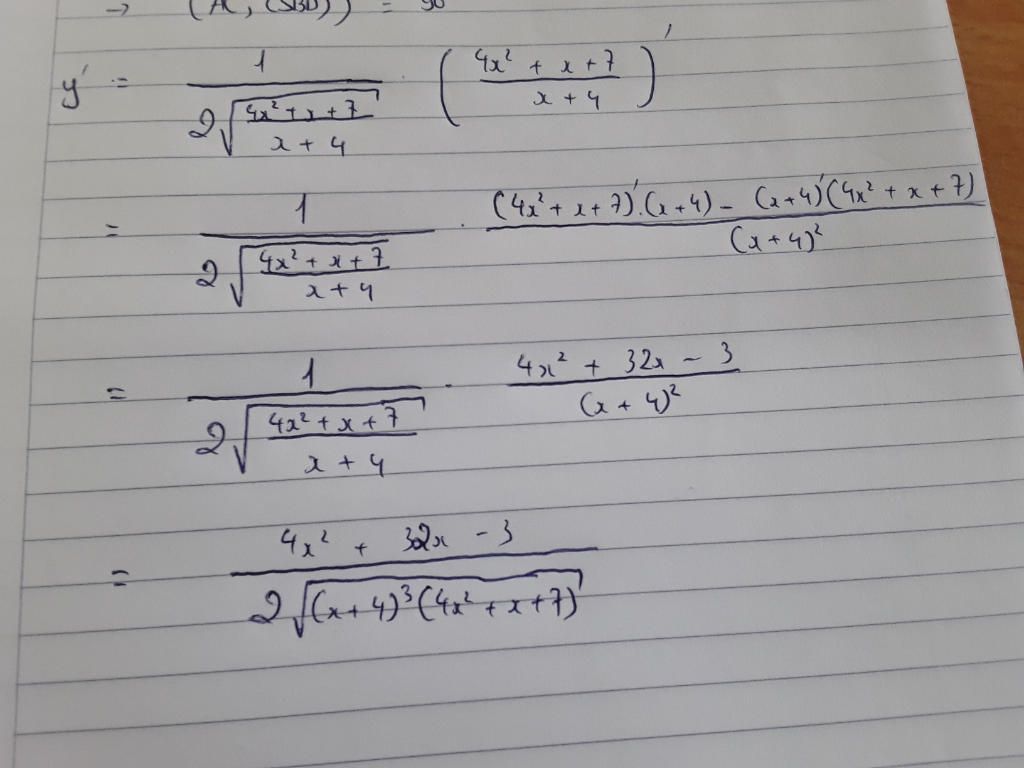 → (AC, (SBD)) = 90
y' = 1 / (2√((4x² + x + 7)/(x + 4))) · ((4x² + x + 7)/(x + 4))'
= 1 / (2√((4x² + x + 7)/(x + 4))) · ((4x² + x + 7)'.(x + 4) - (x + 4)'(4x² + x + 7))/(x + 4)²
= 1 / (2√((4x² + x + 7)/(x + 4))) · (4x² + 32x - 3)/(x + 4)²
= (4x² + 32x - 3)/(2√((x + 4)³(4x² + x + 7)))